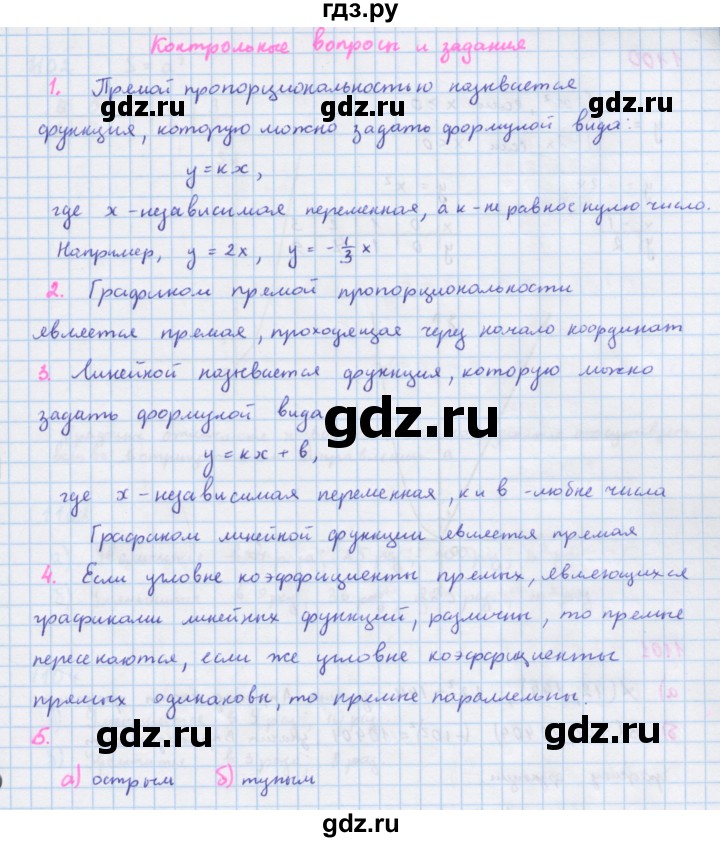 гдз.ру
Контрольные вопросы и задания
1. Прямой пропорциональностью называется
функция, которую можно задать формулой вида:
y = кx,
где x - независимая переменная, а к - не равное нулю число.
Например, y = 2x, y = - 1/3 x
2. Графиком прямой пропорциональности
является прямая, проходящая через начало координат
3. Линейной называется функция, которую можно
задать формулой вида
y = кx + в,
где x - независимая переменная, к и в - любые числа
Графиком линейной функции является прямая
4. Если угловые коэффициенты прямых, являющихся
графиками линейных функций, различны, то прямые
пересекаются, если же угловые коэффициенты
прямых одинаковы, то прямые параллельны.
5.
а) острым б) тупым
gdz.ru
gdz.ru
gdz.ru
gdz.ru
gdz.ru
gdz.ru
gdz.ru
gdz.ru